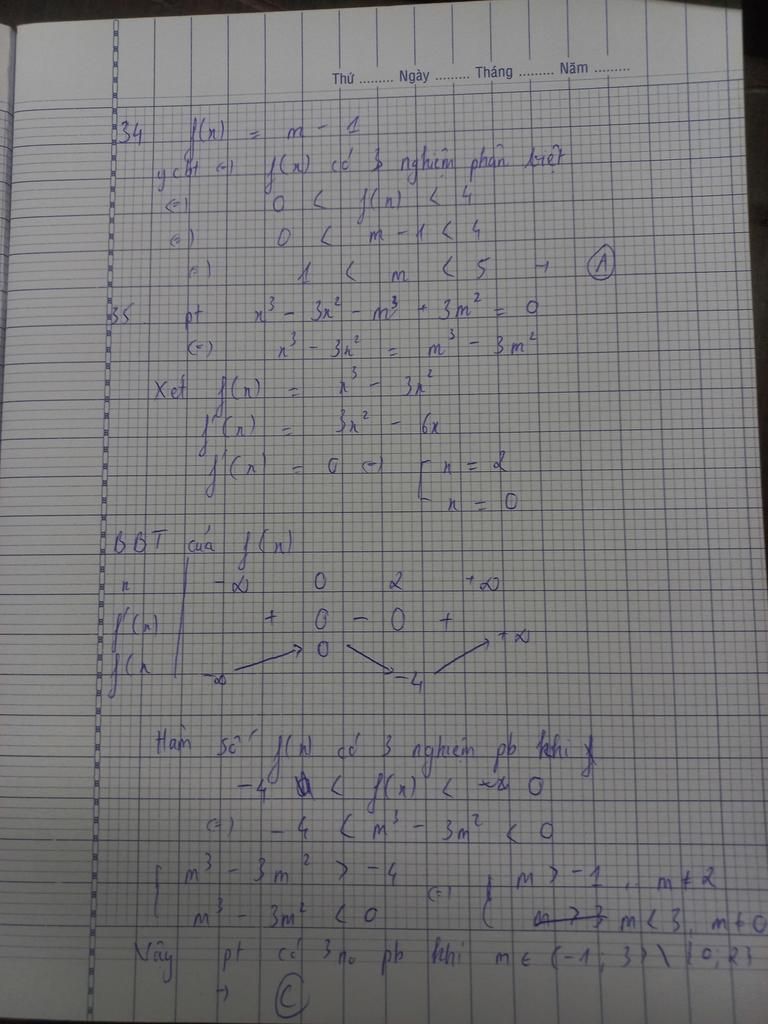 Thứ ......... Ngày ......... Tháng ......... Năm .........
34 f(x) = m - 1
ycbt (=) f(x) có 3 nghiệm phân biệt
(=) 0 < f(x) < 4
(=) 0 < m - 1 < 4
(=) 1 < m < 5 → (A)
35 pt x³ - 3x² - m³ + 3m² = 0
(=) x³ - 3x² = m³ - 3m²
Xét f(x) = x³ - 3x²
f'(x) = 3x² - 6x
f'(x) = 0 (=) [ x = 2
x = 0
BBT của f(x)
x | -∞ 0 2 +∞
f'(x) + 0 - 0 +
f(x -∞ 0 -4 +∞
Hàm số f(x) có 3 nghiệm pb khi
-4 < f(x) < 0
(=) -4 < m³ - 3m² < 0
{ m³ - 3m² > -4 (=) { m > -1, m ≠ 2
m³ - 3m² < 0 m < 3, m ≠ 0
Vậy pt có 3 no pb khi m ∈ (-1; 3) \ {0; 2}
→ (C)